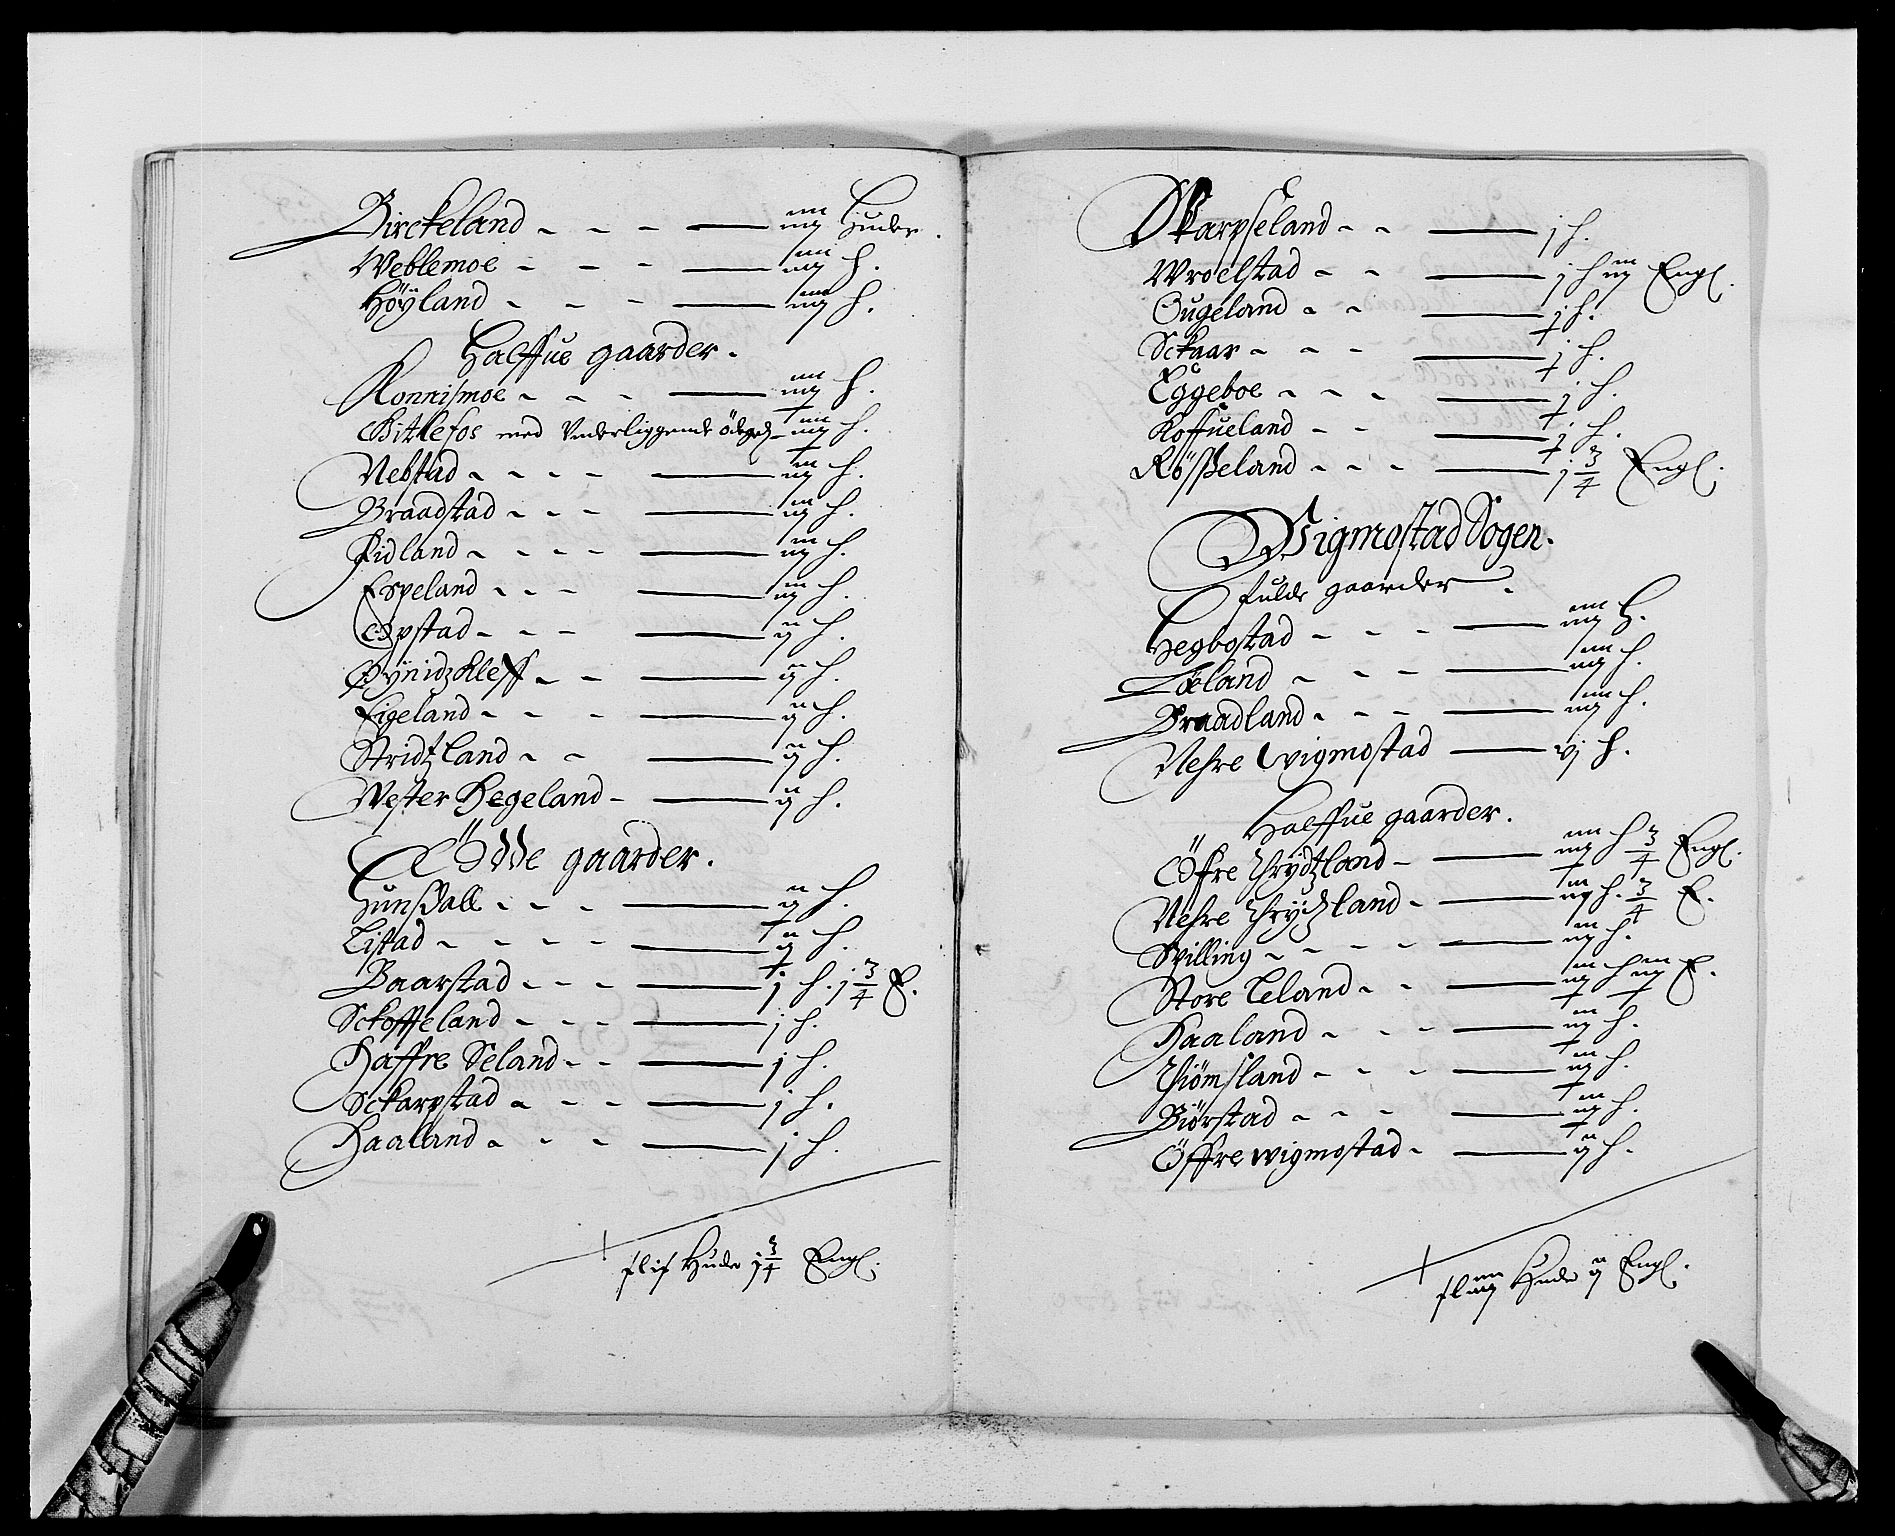 Birckeland - - - iiij Huder.
Weblemoe - - - iiij H.
Höyland - - - iiij H.
Halffue gaarder.
Konnismoe - - - iiij H.
Bitlefos med Vnderliggende iiij H.
Nebstad - - - - iij H.
Braadstad - - - iij H.
Fidland - - - - iij H.
Espeland - - - iij H.
Opstad - - - ij H.
ij H.
Eigeland - - - ij H.
Stridtzland - - ij H.
Wester Hegeland - ij H.
Ödde gaarder.
Hunsdall - - - ij H.
Listad - - - - ij H.
Baarstad - - - j H. j 3/4 E.
Sckoffeland - - - j H.
Haffre Seland - - j H.
Sckarpstad - - - j H.
Haaland - - - j H.
Huder j 3/4 Engl.
Skarpseland - - j H.
Wroelstad - - j H iij Engl.
Ougeland - - j H.
Sckaar - - - j H.
Eggeboe - - - j H.
Koffueland - - j H.
Rösseland - - - j 3/4 Engl.
Wigmostad Sogen.
fulde gaarder.
Hegbostad - - - iiij H.
Leland - - - iiij H.
Fraadland - - - iiij H.
Nehre wigmostad vj H.
Halffue gaarder.
Öfre Trydtzland - iiij H 3/4 Engl.
Nehre Trydtzland - iij H. 3/4 E.
Spilling - - - - iij H.
Store Leland - - iij H iij E.
Haaland - - - iij H.
Thiömsland - - - iij H.
Biörstad - - - iij H.
Öffre wigmostad - ij H.
Huder ij Engl.